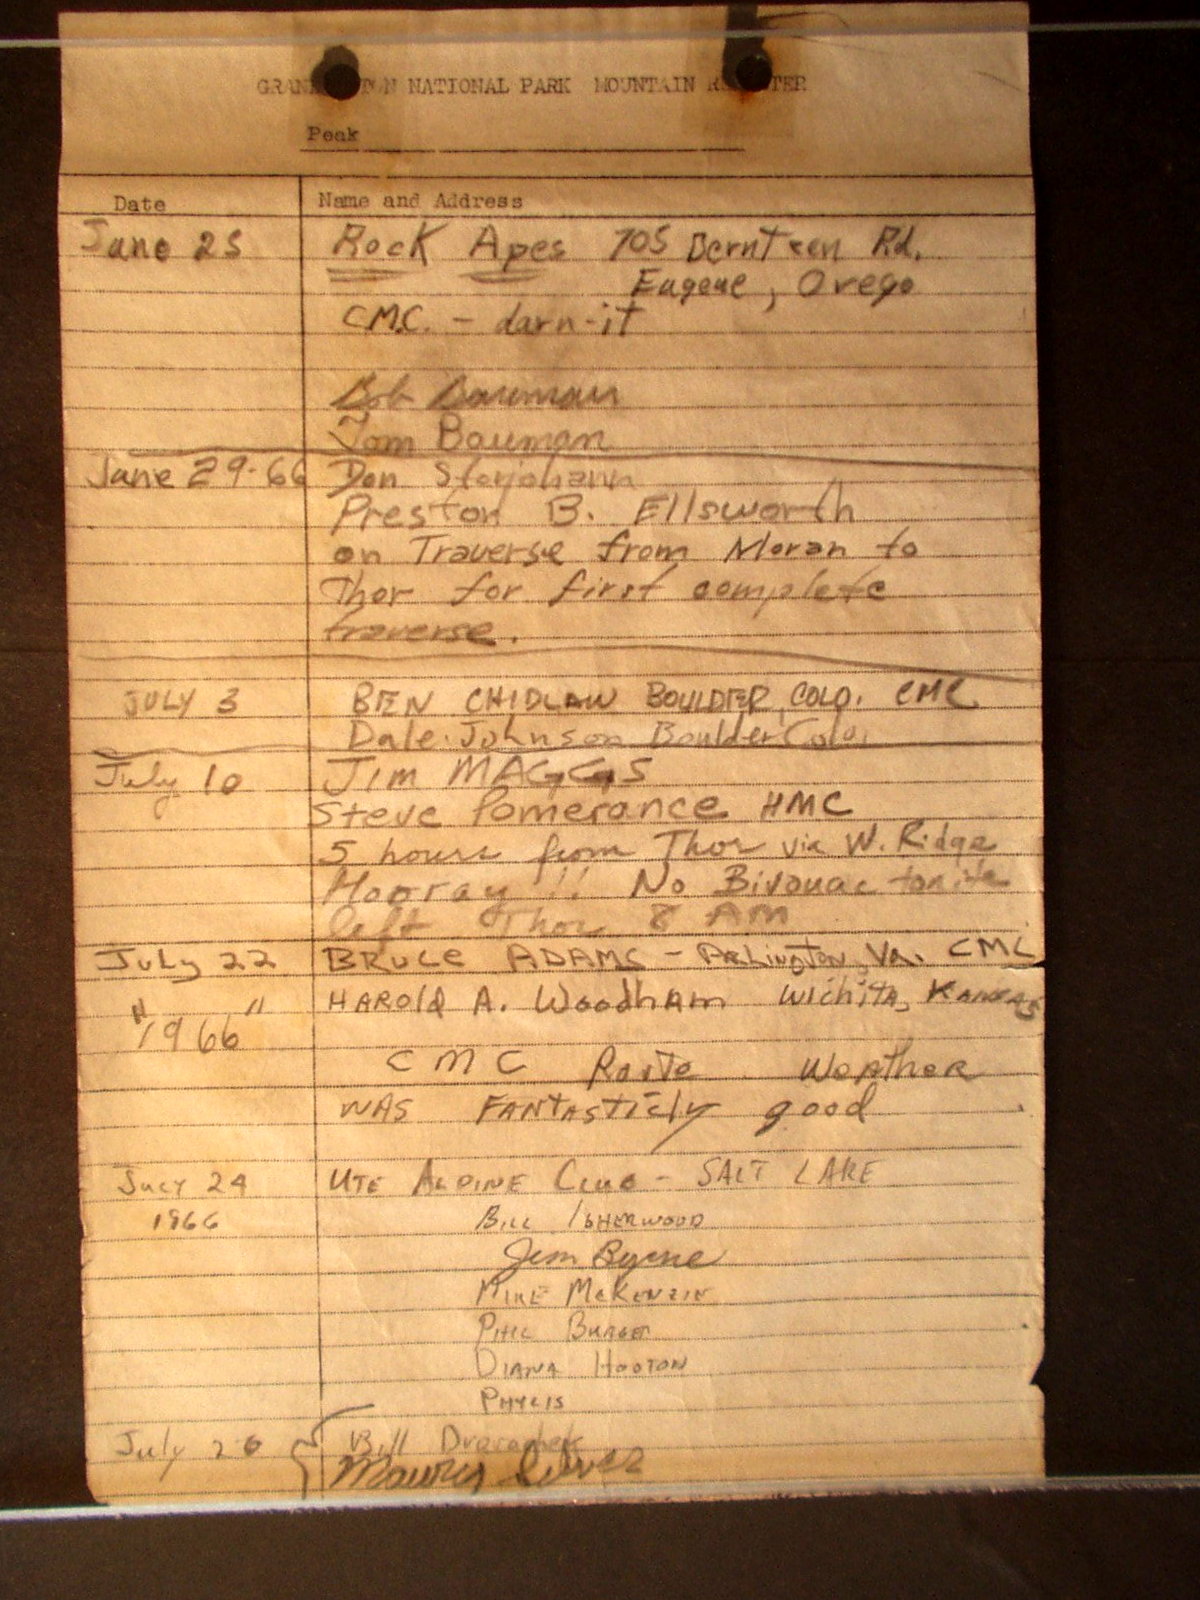 GRAND TETON NATIONAL PARK MOUNTAIN REGISTER
Peak
Date Name and Address
June 25 Rock Apes 705 Berntzen Rd.
Eugene, Orego
C.M.C. - darn-it
Bob Bauman
Tom Bauman
June 29-66 Don
Preston B. Ellsworth
on Traverse from Moran to
Thor for first complete
traverse.
JULY 3 BEN CHIDLAW BOULDER, COLO. CMC
Dale Johnson Boulder Colo.
July 10 JIM MAGGS
Steve Pomerance HMC
5 hours from Thor via W. Ridge
Hooray !! No Bivouac tonite
left Thor 8 AM
July 22 BRUCE ADAMS - ARLINGTON, VA. CMC
" 1966 " HAROLD A. Woodham Wichita, KANSAS
CMC Route Weather
WAS FANTASTICly good
JULY 24 UTE ALPINE CLUB - SALT LAKE
1966 BILL ISHERWOOD
Jim Byrne
MIKE McKENZIE
PHIL
DIANA HOOTON
PHYLIS
July 26 Bill
Silver